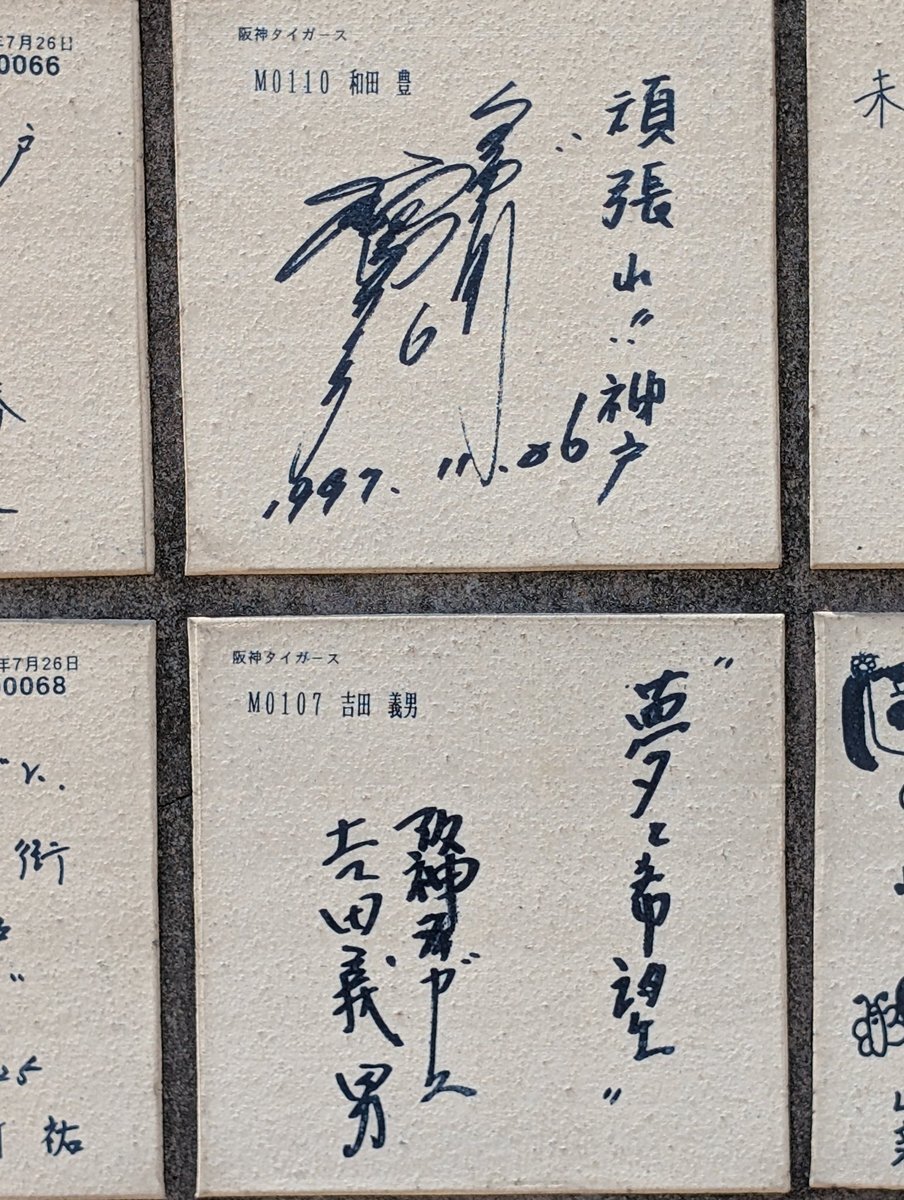 年7月26日
0066
戸
阪神タイガース
M0110 和田 豊
頑張れ!! 神戸
6
1997. 11. 26
未
年7月26日
00068
街
25
祐
阪神タイガース
M0107 吉田 義男
"夢と希望"
阪神タイガース
吉田義男